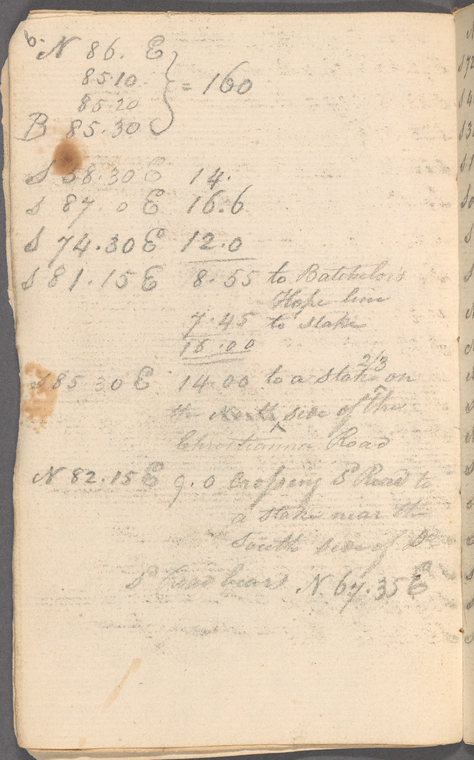 b. N 86. E
85.10
85.20 } = 160
B 85.30
S 58.30 E 14.
S 87.0 E 16.6
S 74.30 E 12.0
S 81.15 E 8.55 to Batchelors
Hope line
7.45 to stake
16.00
S 85.30 E 14.00 to a Stake 2/3 on
the North side of the
Christianna Road
N 82.15 E 9.0 Crossing Sd Road to
a stake near the
South side of Do
Sd Road bears N. 67.35 E